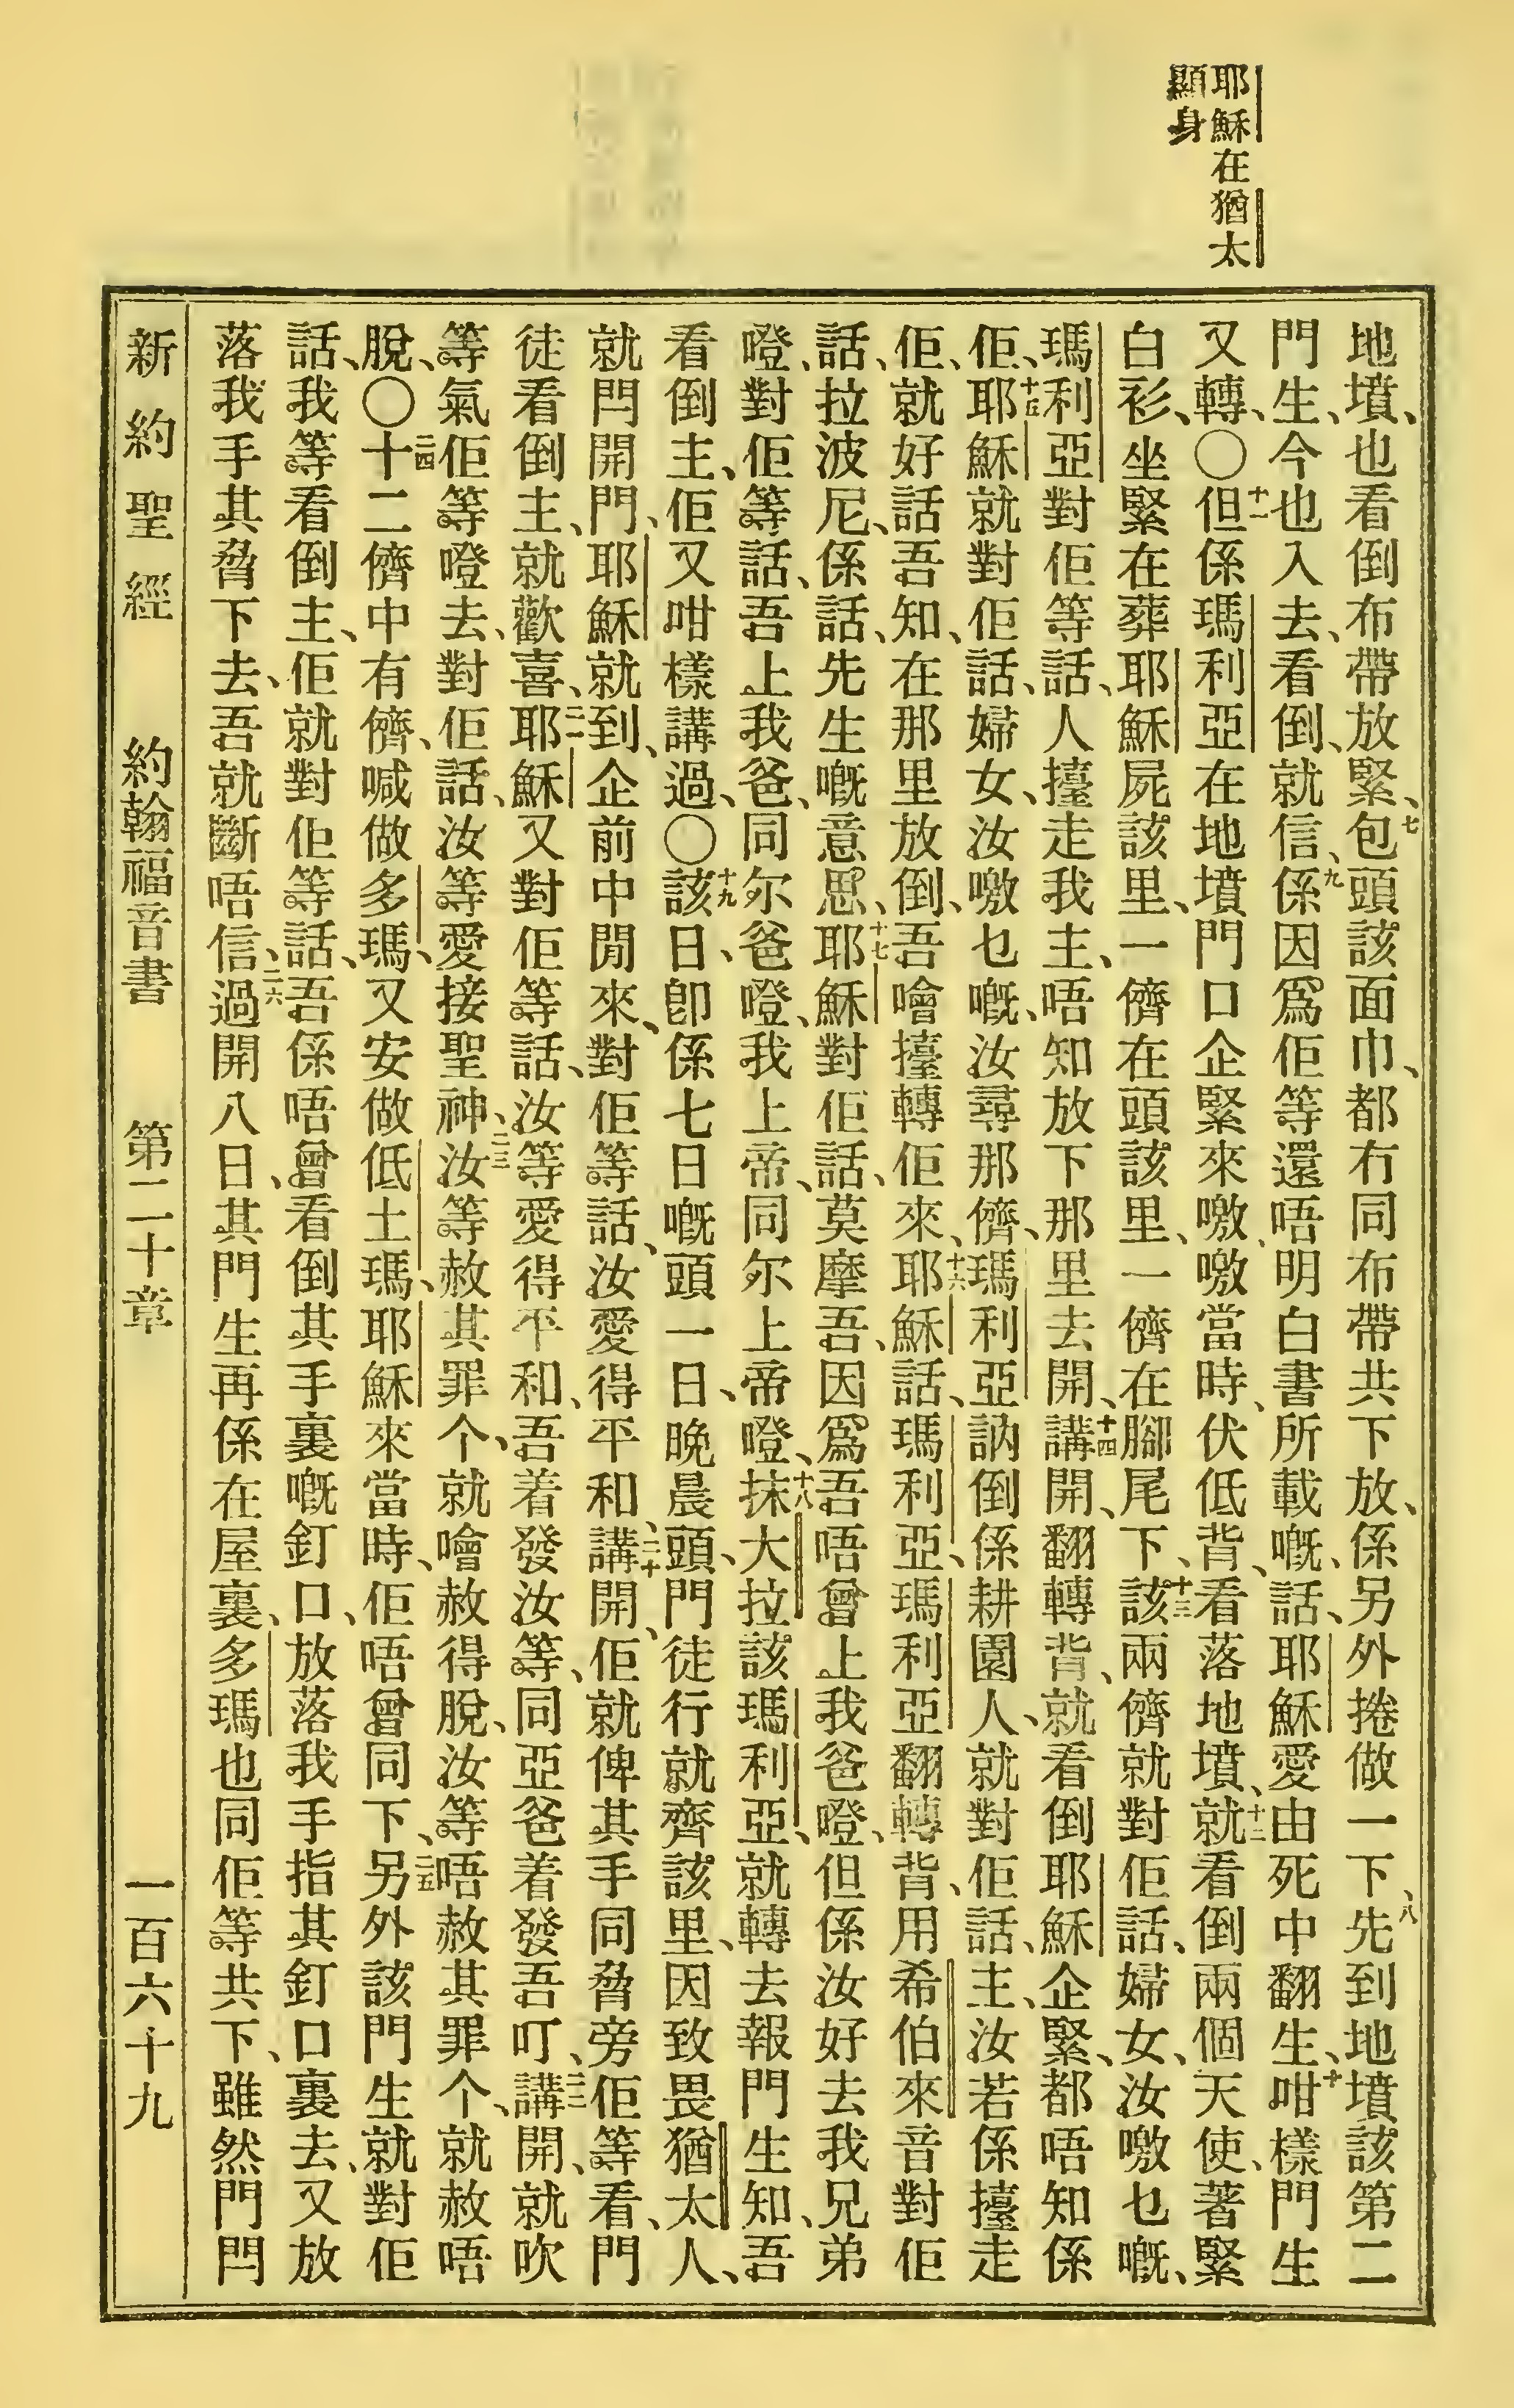 耶穌在猶太
顯身
地墳、也看倒布帶放緊、七包頭該面巾、都冇同布帶共下放、係另外捲做一下、八先到地墳該第二
門生、今也入去、看倒、就信、九係因爲佢等還唔明白書所載嘅、話、耶穌愛由死中翻生、十咁樣門生
又轉、〇十一但係瑪利亞在地墳門口企緊來噭、噭當時、伏低背、看落地墳、十二就看倒兩個天使、著緊
白衫、坐緊在葬耶穌屍該里、一儕在頭該里、一儕在腳尾下、十三該兩儕就對佢話、婦女、汝噭乜嘅、
瑪利亞對佢等話、人擡走我主、唔知放下那里去開、十四講開、翻轉背、就看倒耶穌企緊、都唔知係
佢、十五耶穌就對佢話、婦女、汝噭乜嘅、汝尋那儕、瑪利亞訥倒係耕園人、就對佢話、主、汝若係擡走
佢、就好話吾知、在那里放倒、吾噲擡轉佢來、十六耶穌話、瑪利亞、瑪利亞翻轉背、用希伯來音對佢
話、拉波尼、係話、先生嘅意思、十七耶穌對佢話、莫摩吾、因爲吾唔曾上我爸噔、但係汝好去我兄弟
噔、對佢等話、吾上我爸、同尔爸噔、我上帝、同尔上帝噔、十八抹大拉該瑪利亞、就轉去報門生知、吾
看倒主、佢又咁樣講過、〇十九該日、卽係七日嘅頭一日、晚晨頭、門徒行就齊該里、因致畏猶太人、
就閂開門、耶穌就到、企前中閒來、對佢等話、汝愛得平和、二十講開、佢就俾其手同脅旁佢等看、門
徒看倒主、就歡喜、二一耶穌又對佢等話、汝等愛得平和、吾着發汝等、同亞爸着發吾叮、二二講開、就吹
等氣佢等噔去、對佢話、汝等愛接聖神、二三汝等赦其罪个、就噲赦得脫、汝等唔赦其罪个、就赦唔
脫、〇二四十二儕中有儕、喊做多瑪、又安做低土瑪、耶穌來當時、佢唔曾同下、二五另外該門生就對佢
話、我等看倒主、佢就對佢等話、吾係唔曾看倒其手裏嘅釘口、放落我手指其釘口裏去、又放
落我手其脅下去、吾就斷唔信、二六過開八日、其門生再係在屋裏、多瑪也同佢等共下、雖然門閂
新約聖經　約翰福音書　第二十章　一百六十九